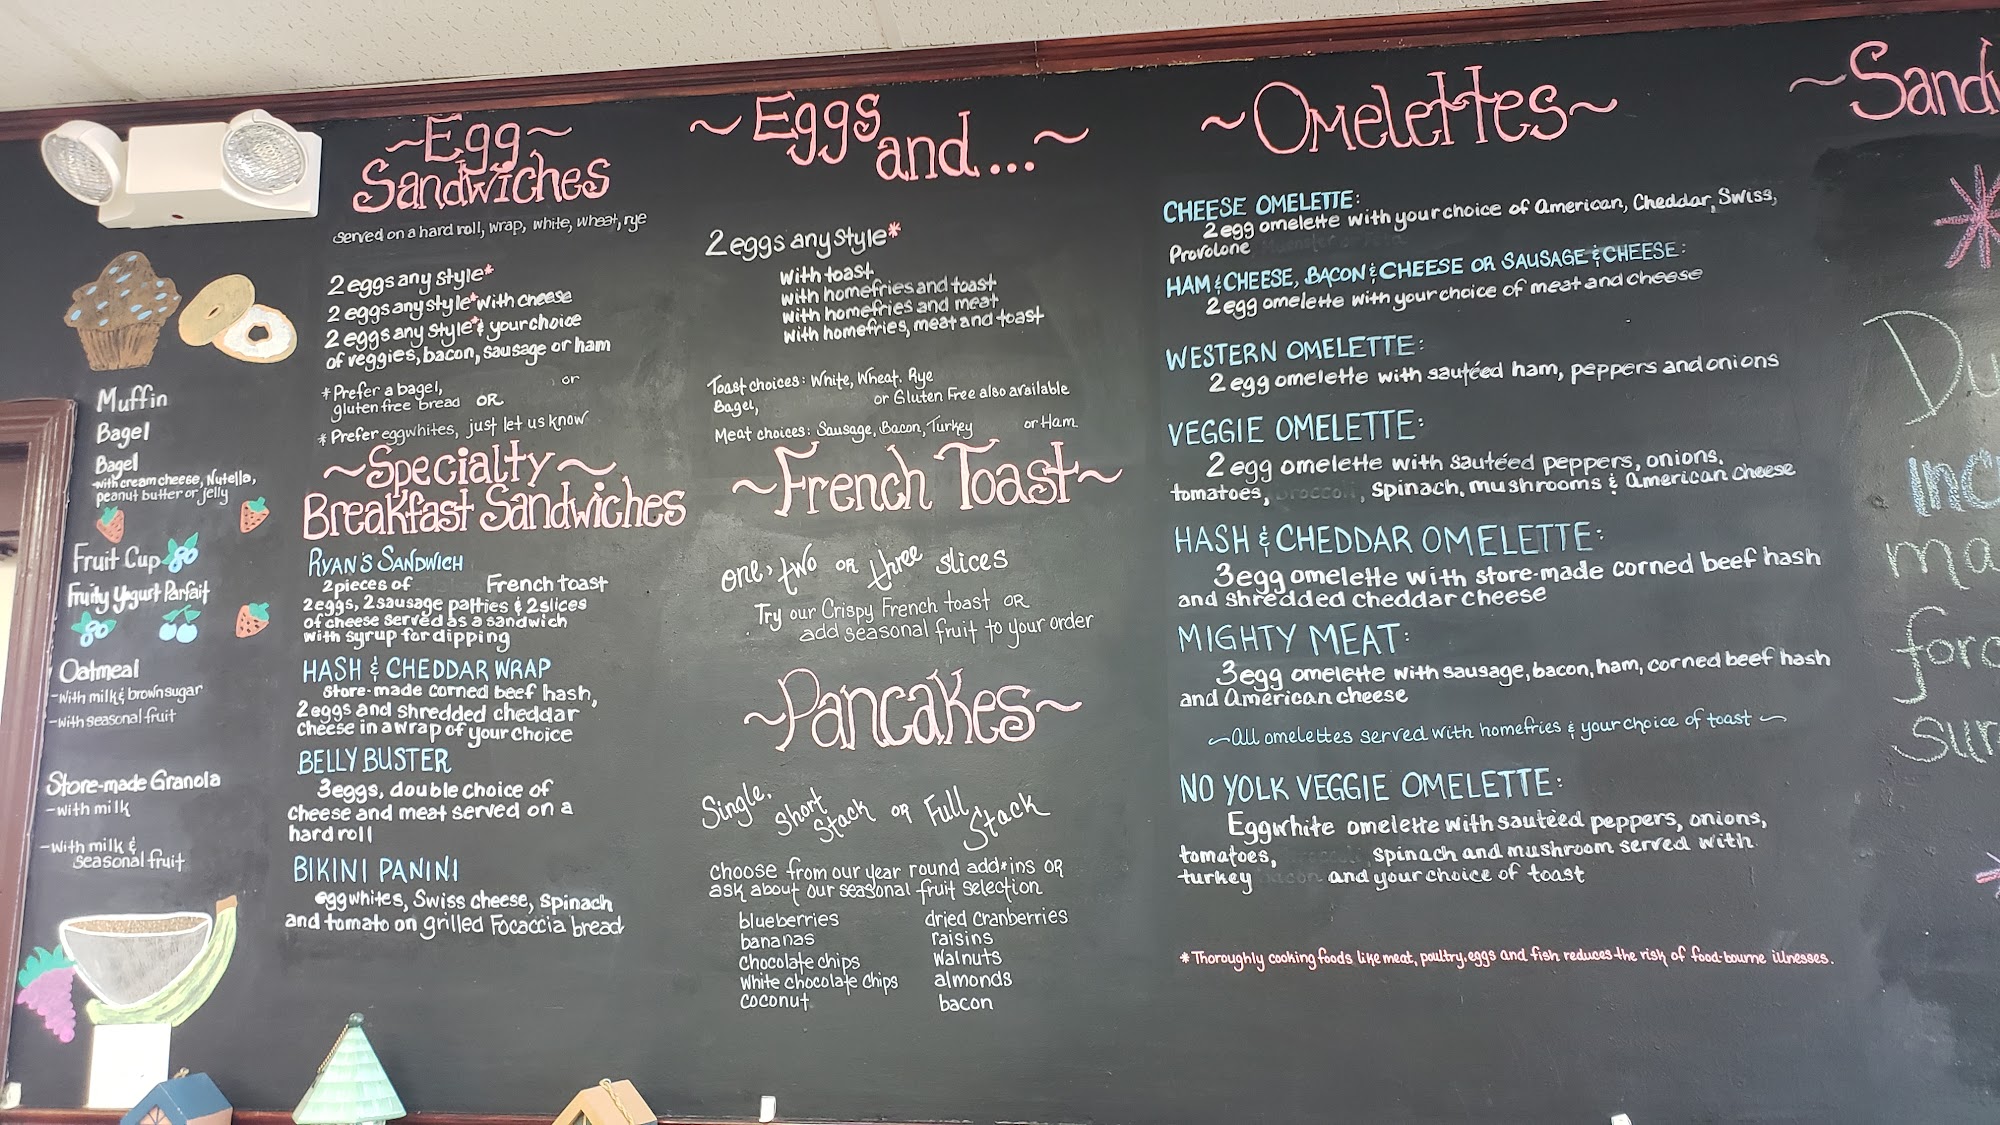 Muffin
Bagel
Bagel
-with cream cheese, Nutella,
peanut butter or jelly
Fruit Cup
Fruity Yogurt Parfait
Oatmeal
-with milk & brown sugar
-with seasonal fruit
Store-made Granola
-with milk
-with milk &
seasonal fruit
~Egg~
Sandwiches
served on a hard roll, wrap, white, wheat, rye
2 eggs any style*
2 eggs any style* with cheese
2 eggs any style* & your choice
of veggies, bacon, sausage or ham
*Prefer a bagel, or
gluten free bread OR
*Prefer eggwhites, just let us know
~Specialty~
Breakfast Sandwiches
RYAN'S SANDWICH
2 pieces of French toast
2 eggs, 2 sausage patties & 2 slices
of cheese served as a sandwich
with syrup for dipping
HASH & CHEDDAR WRAP
store-made corned beef hash,
2 eggs and shredded cheddar
cheese in a wrap of your choice
BELLY BUSTER
3 eggs, double choice of
cheese and meat served on a
hard roll
BIKINI PANINI
eggwhites, Swiss cheese, spinach
and tomato on grilled Focaccia bread
~Eggs
and...~
2 eggs any style*
with toast
with homefries and toast
with homefries and meat
with homefries, meat and toast
Toast choices: White, Wheat. Rye
Bagel, or Gluten Free also available
Meat choices: Sausage, Bacon, Turkey or Ham
~French Toast~
one, two or three slices
Try our Crispy French toast OR
add seasonal fruit to your order
~Pancakes~
Single, Short Stack or Full Stack
choose from our year round add*ins OR
ask about our seasonal fruit selection
blueberries dried cranberries
bananas raisins
chocolate chips walnuts
white chocolate chips almonds
coconut bacon
~Omelettes~
CHEESE OMELETTE:
2 egg omelette with your choice of American, Cheddar, Swiss,
Provolone
HAM & CHEESE, BACON & CHEESE OR SAUSAGE & CHEESE:
2 egg omelette with your choice of meat and cheese
WESTERN OMELETTE:
2 egg omelette with sautéed ham, peppers and onions
VEGGIE OMELETTE:
2 egg omelette with sautéed peppers, onions.
tomatoes, broccoli, spinach, mushrooms & American cheese
HASH & CHEDDAR OMELETTE:
3 egg omelette with store-made corned beef hash
and shredded cheddar cheese
MIGHTY MEAT:
3 egg omelette with sausage, bacon, ham, corned beef hash
and American cheese
~All omelettes served with homefries & your choice of toast~
NO YOLK VEGGIE OMELETTE:
Eggwhite omelette with sautéed peppers, onions,
tomatoes, spinach and mushroom served with
turkey bacon and your choice of toast
*Thoroughly cooking foods like meat, poultry, eggs and fish reduces the risk of food-bourne illnesses.